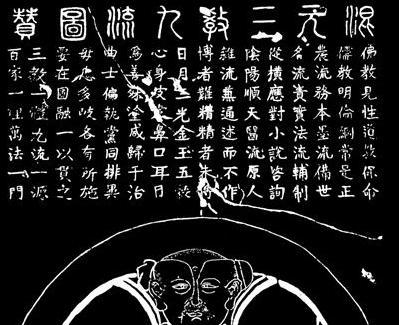 混元三教九流圖贊
佛教見性道教保命
儒教明倫綱常是正
農流務本墨流備世
名流責實法流輔制
從橫應對小說咨詢
陰陽順天醫流原人
雜流兼通述而不作
博者難精精者未博
日月三光金玉五穀
心身皮膚鼻口耳目
為善殊途咸歸于治
曲士偏執黨同排異
毋患多歧各有所施
要在圓融一以貫之
三教一體九流一源
百家一理萬法一門